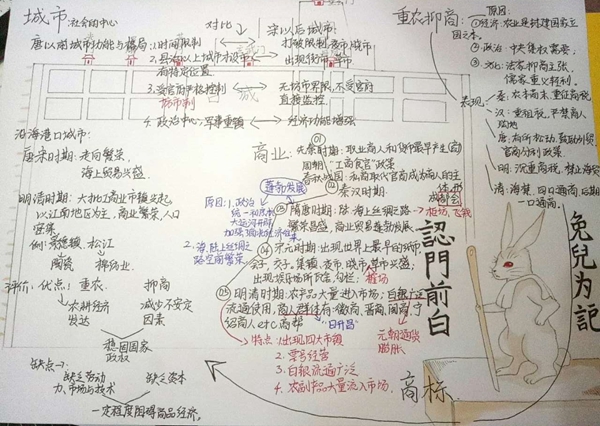 城市:社会的中心
唐以前城市功能与格局:1.时间限制
2.县治以上城市才设市
有特定位置
3.受官府严格控制
坊市制
4.政治中心,军事重镇
对比
宋以后城市:
打破限制,夜市,晓市
出现街市,草市
无坊市界限,不受官府
直接监控
经济功能增强
重农抑商
原因:
①经济:农业是封建国家立
国之本。
②政治:中央集权需要;
③文化:法家抑商主张,
儒家重义轻利。
表现:
秦:农本商末,重征商税
汉:重租税,严禁商人
唐:有所松动,
官商分利政策
明:沉重商税,禁止海
清:海禁,四口通商,后期
一口通商。
沿海港口城市:
唐宋时期:走向繁荣,
海上贸易兴盛。
明清时期:大批工商业市镇兴起,
以江南地区为主,商业繁荣,人口
密集
例:景德镇 松江
陶瓷 棉纺业
商业:
01
先秦时期:职业商人和货币最早产生(商)
周朝:"工商食官"政策
春秋战国:私商取代官商成为商人的主
体
02
秦汉时期:
蓬勃发展
原因:1.政治
统一和民族
大运河开通
2.海、陆上丝绸之
路空前繁荣
03
隋唐时期:陆、海上丝绸之路
繁荣昌盛,商业贸易蓬勃发展
柜坊,飞钱
04
宋元时期:出现世界上最早的纸币
交子,集镇,夜市,晓市,草市兴盛;
出现娱乐场所瓦舍,勾栏;
榷场
05
明清时期:农产品大量进入市场;白银广泛
流通使用,商人群体有:徽商,晋商,闽商,
给商人etc商帮
"日升昌"
元朝通货
膨胀
特点:1.出现四大市镇
2.票号经营
3.白银流通广泛
4.农副产品大量流入市场。
评价:优点:重农 抑商
农耕经济 减少不安定
发达 因素
稳固国家
政权
缺点→:
缺乏劳动 缺乏资本
力、市场与技术
一定程度阻碍商品经济。
認門前白
兔兒为記
商标